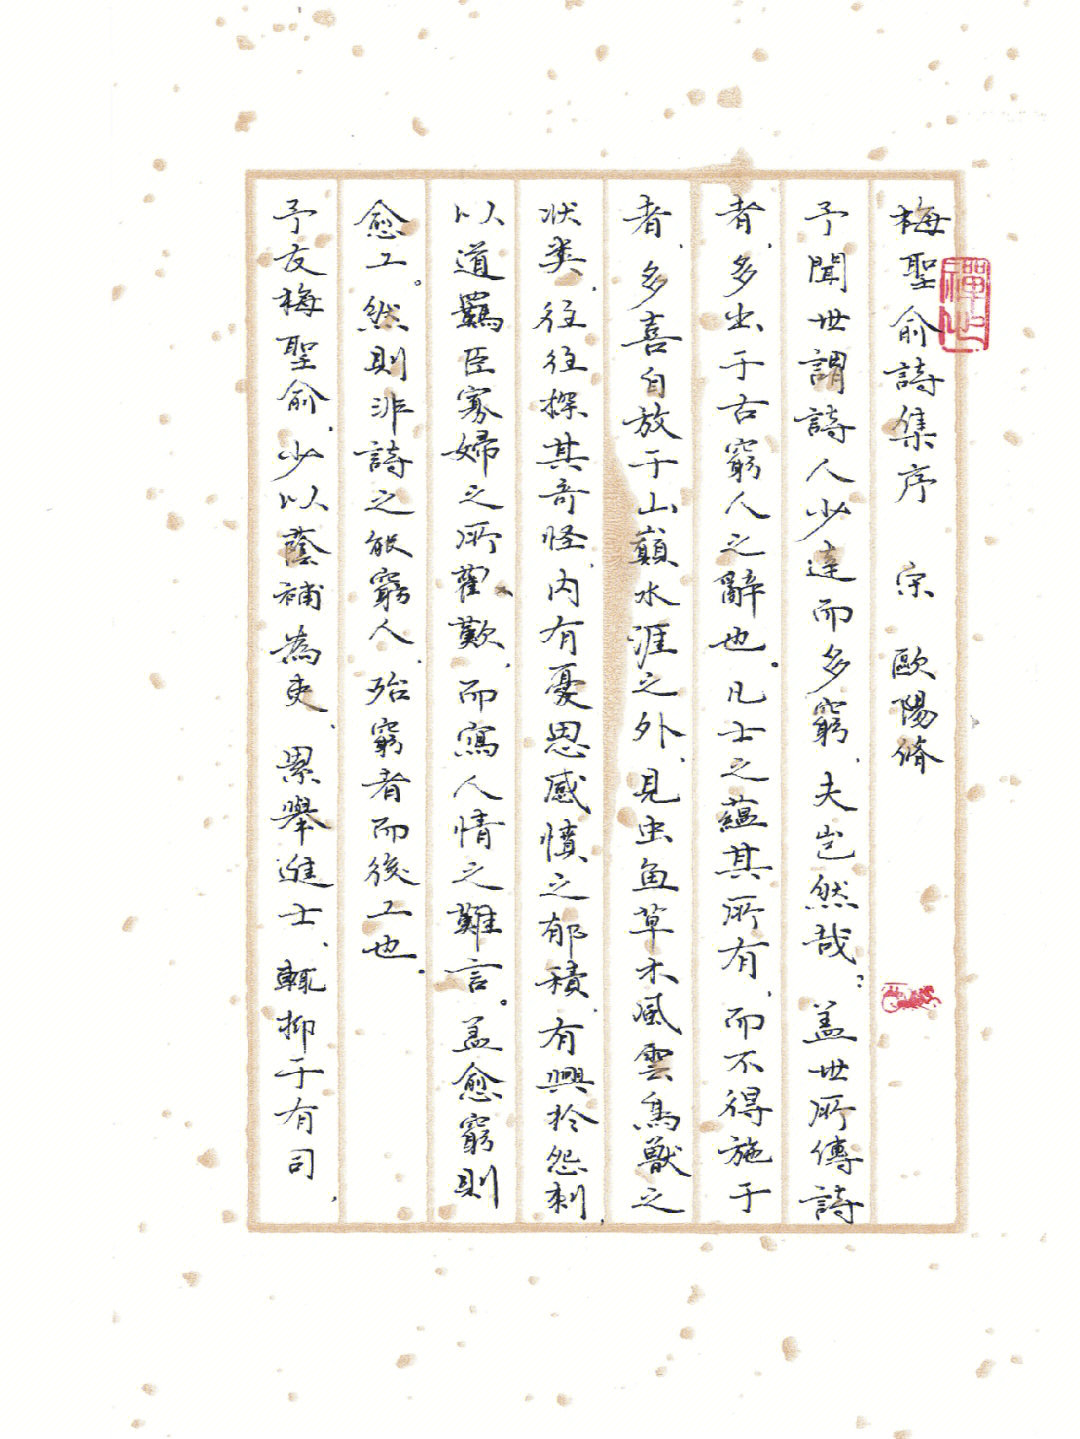 梅聖俞詩集序 宋 歐陽脩
予聞世謂詩人少達而多窮，夫豈然哉：蓋世所傳詩
者，多出于古窮人之辭也。凡士之蘊其所有，而不得施于
者，多喜自放于山巔水涯之外，見虫鱼草木風雲鳥獸之
狀类，往往探其奇怪，內有憂思感憤之郁積，有興於怨刺，
以道羈臣寡婦之所歡歎，而寫人情之難言。盖愈窮則
愈工。然則非詩之能窮人，殆窮者而後工也。
予友梅聖俞，少以蔭補為吏，累舉進士，輒抑于有司，